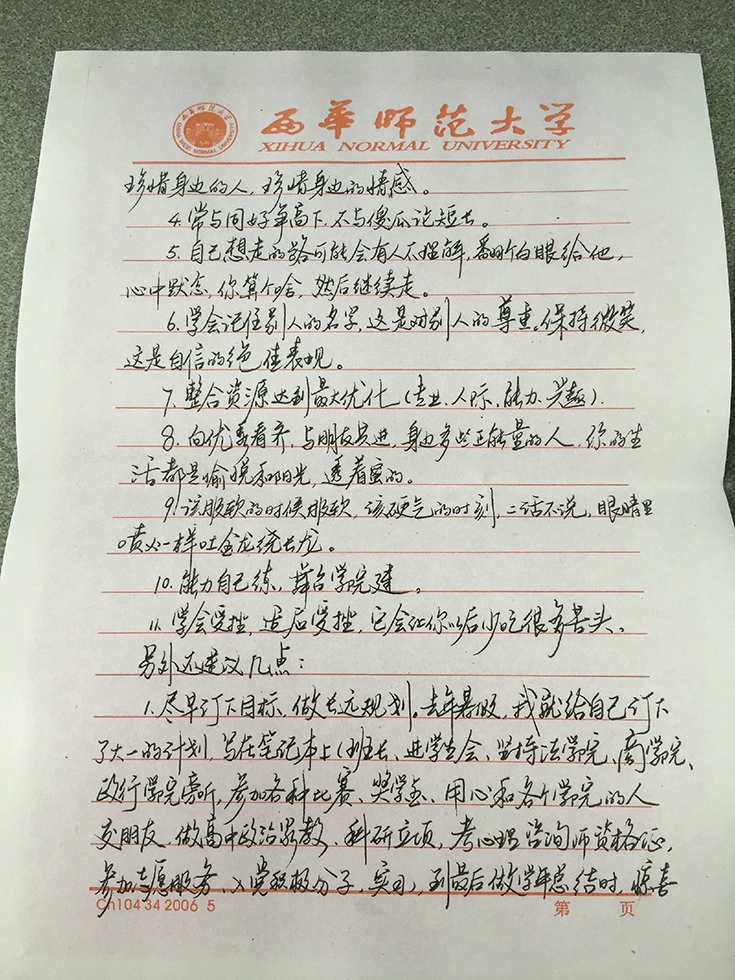 西华师范大学
XIHUA NORMAL UNIVERSITY
西华师范大学
CHINA WEST NORMAL UNIVERSITY
珍惜身边的人,珍惜身边的情感。
4.常与同好争高下,不与傻瓜论短长。
5.自己想走的路可能会有人不理解,翻个白眼给他,
心中默念,你算个啥,然后继续走。
6.学会记住别人的名字,这是对别人的尊重。保持微笑,
这是自信的绝佳表现。
7.整合资源达到最大优化(专业、人际、能力、兴趣).
8.向优秀看齐,与朋友共进,身边多些正能量的人,你的生
活都是愉悦和阳光,透着蜜的。
9.该服软的时候服软,该硬气的时刻,二话不说,眼睛里
喷火一样吐金龙绕长龙。
10.能力自己练,舞台学院建。
11.学会受挫,适应受挫,它会让你以后少吃很多苦头、
另外还建议几点:
1.尽早订下目标,做长远规划。去年暑假,我就给自己订下
了大一的计划,写在笔记本上(班长、进学生会、坚持法学院、商学院、
政行学院旁听,参加各种比赛、奖学金、用心和各个学院的人
交朋友,做高中政治家教、科研立项,考心理咨询师资格证,
参加志愿服务,入党积极分子,实习),到最后做学年总结时,惊喜
Ch104 34 2006 5
第 页